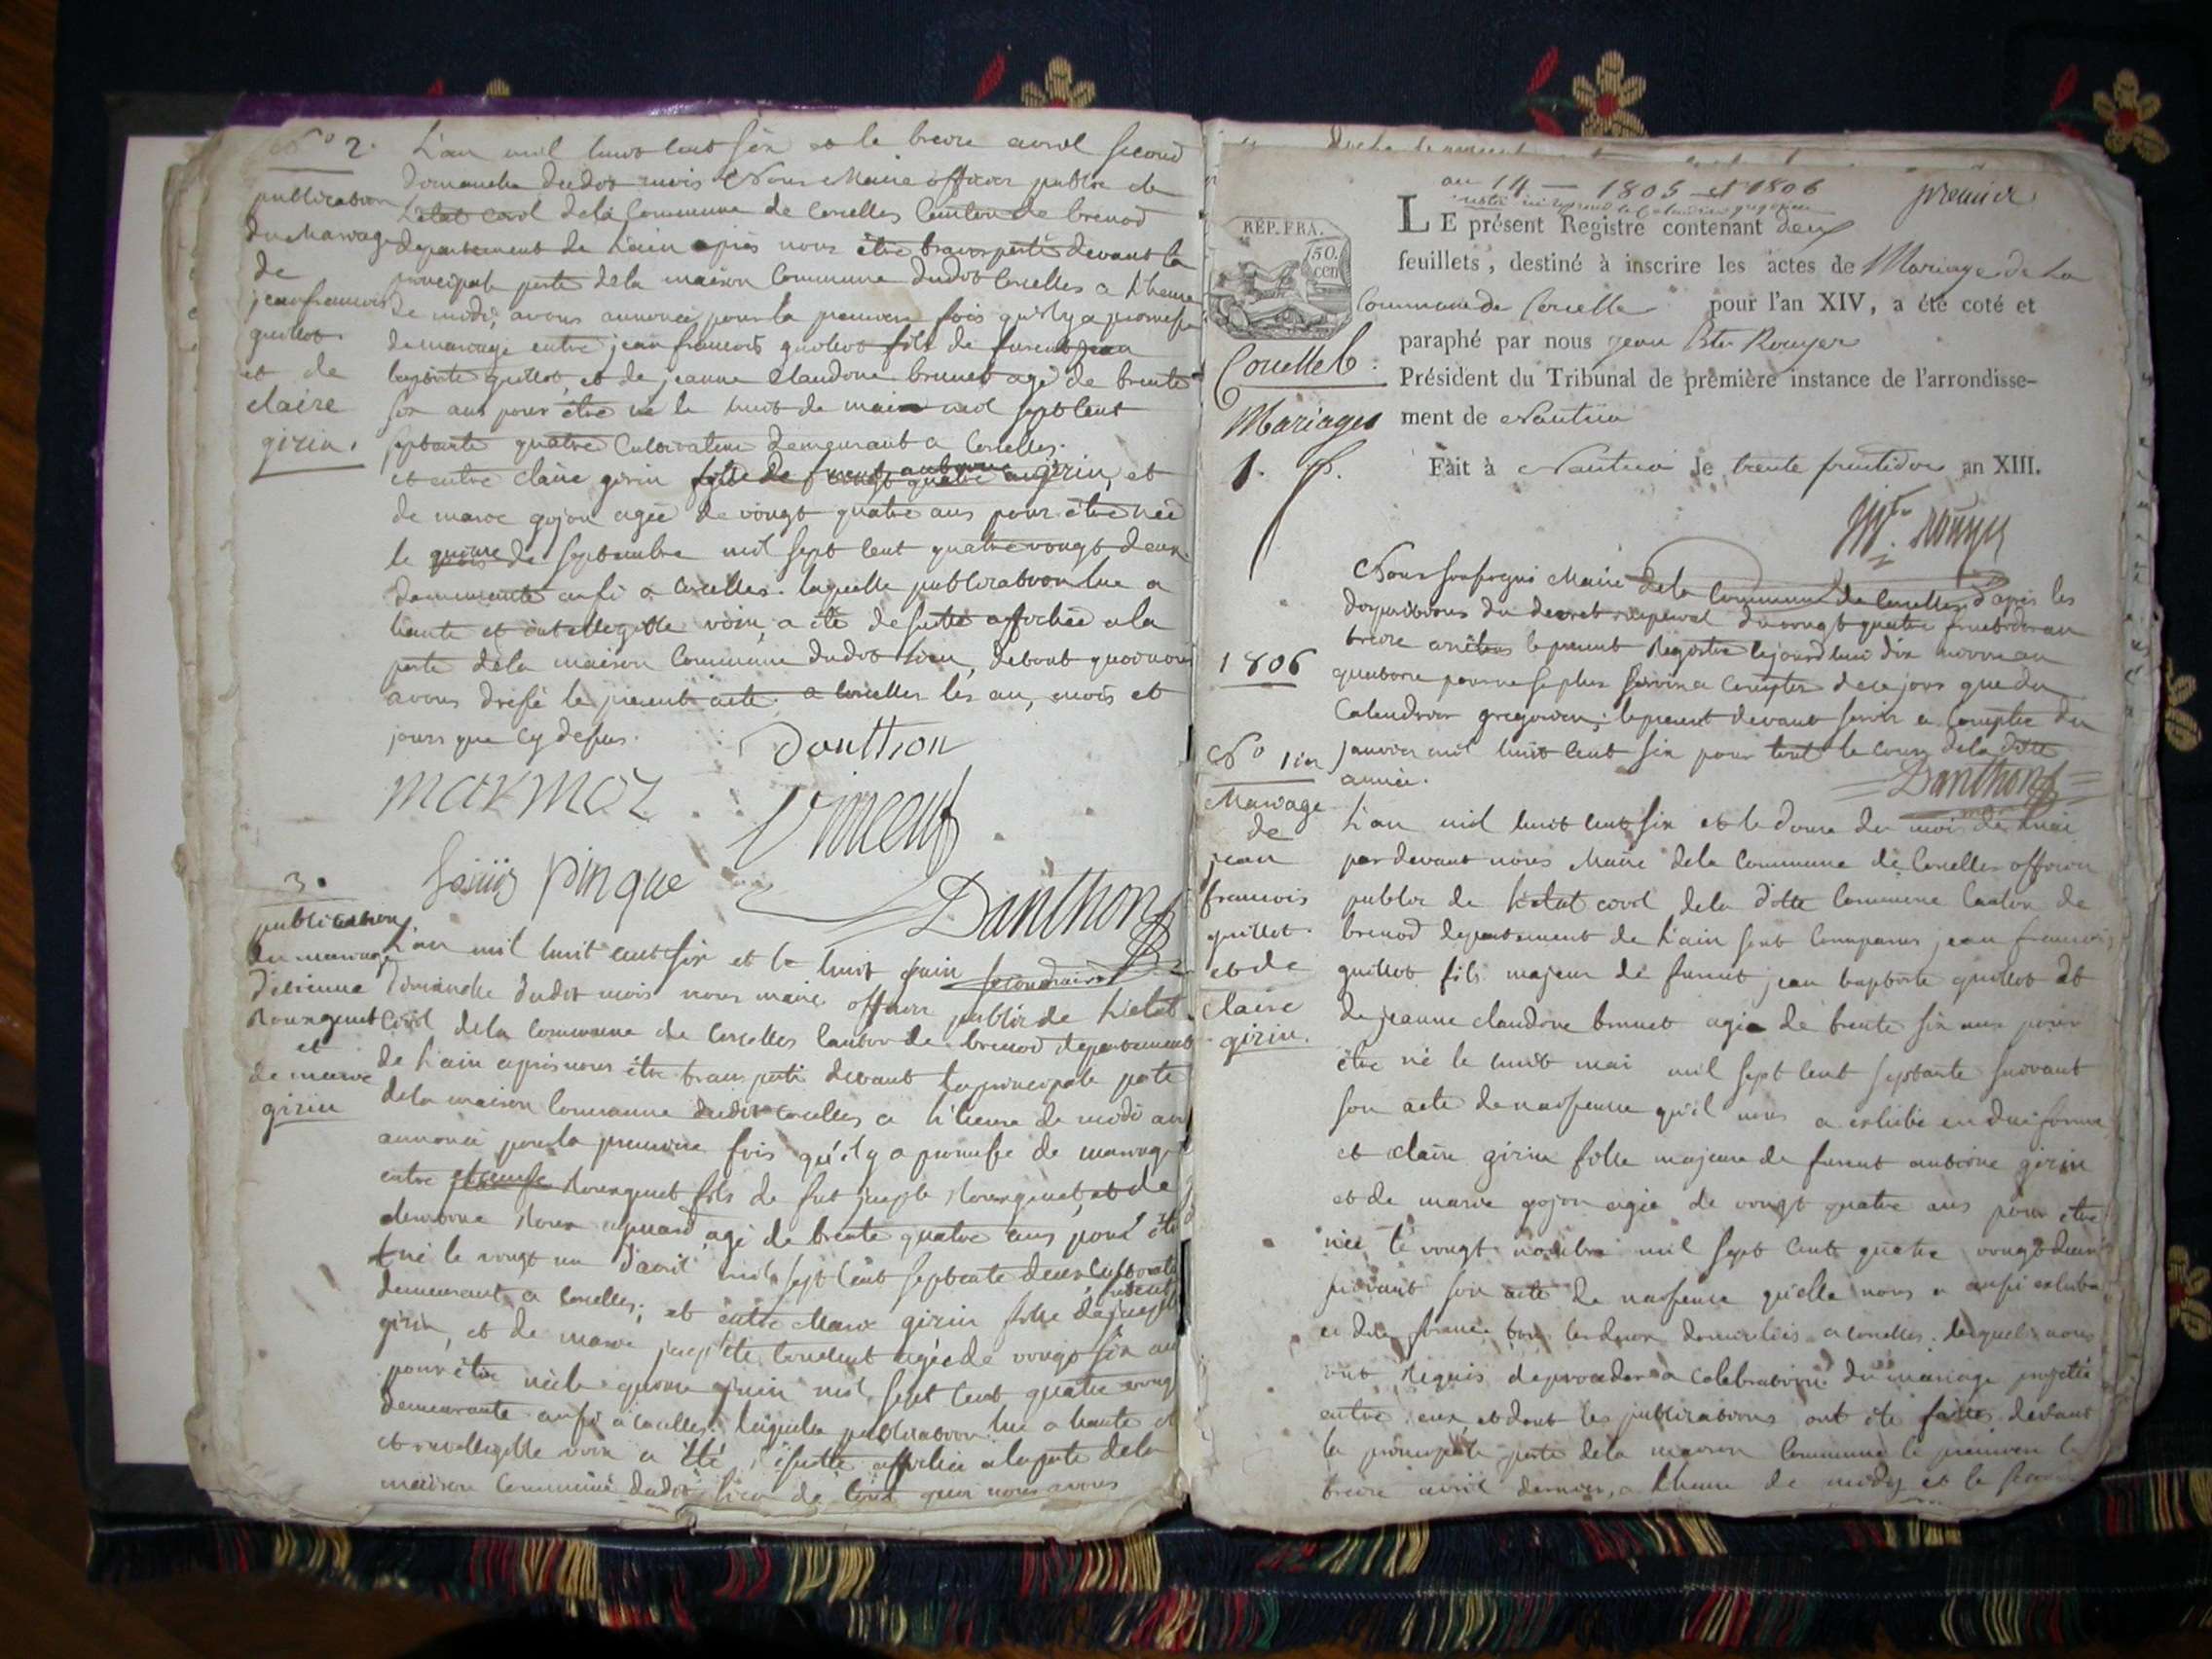 N° 2.
publication
du Mariage
de
jean francois
guillot
et de
claire
girin.
L'an mil huit cent six et le treize avril second
dimanche dudot mois Nous Maire officier public de
L'etat civil dela Commune de Corcelles Canton de brenod
departement de L'ain après nous être transporté devant la
principale porte dela maison Commune dudot Corcelles a L'heure
de midi, avons annoncé pour la premiere fois qu'il y a promesse
de mariage entre jean francois guillot fils de furent jean
baptiste guillot, et de jeanne Claudine brunet agé de trente
six ans pour être né le huit de mai mil sept cent
septante quatre Cultivateur demeurant a Corcelles.
et entre claire girin fille de furent antoine girin, et
de marie gojon agée de vingt quatre ans pour être née
le de septembre mil sept cent quatre vingt deux
demeurante aussi a Corcelles. laquelle publication lue a
haute et intellegible voix, a été desuite affichée ala
porte dela maison Commune dudot lieu, detout quoi nous
avons dressé le present acte a Corcelles les an, mois et
jours que cy dessus.
Danthon
marmoz
Vincent
Louis pinque
Danthon
3.
publication
du mariage
d'etienne
Rouxgeuet
et
de marie
girin
L'an mil huit cent six et le huit juin second
dimanche dudot mois nous maire officier public de L'etat
Civil dela Commune de Corcelles Canton de brenod departement
de L'ain après nous être transporté devant la principale porte
dela maison Commune dudot Corcelles a L'heure de midi
annoncé pour la premiere fois qu'il y a promesse de mariage
entre fils de fut et de
agé de trente quatre ans pour être
né le vingt un d'avril mil sept cent septente deux
demeurant a Corcelles; et entre Marie girin fille de
girin, et de marie agée de vingt six ans
pour être née le juin mil sept cent quatre vingt
demeurante aussi a Corcelles. laquelle publication lue a haute et
et intellegible voix a été desuitte affichée ala porte dela
maison Commune dudot lieu de tout quoi nous avons
an 14 — 1805 et 1806
premier
RÉP. FRA.
50.
cen
LE présent Registre contenant deux
feuillets, destiné à inscrire les actes de Mariage de La
Commune de Corcelle pour l'an XIV, a été coté et
paraphé par nous jean Bte Rouyer
Président du Tribunal de prémière instance de l'arrondisse-
ment de Nantua
Fait à Nantua le trente fructidor an XIII.
Corcelles
Mariages
1.
Rouyer
1806
Nous soussigné Maire dela Commune de Corcelles d'après les
dispositions du decret imperial du vingt quatre fructidor an
treize arrêtons le present Registre cejourd'hui dix nivose an
quatorze pour ne se plus servir a compter de ce jour que du
Calendrier gregorien; le present devant servir a compter du
janvier mil huit cent six pour tout le cours dela ditte
année.
Danthon
N° 1er
Mariage
de
jean
francois
guillot
et de
Claire
girin.
L'an mil huit cent six et le douze du mois de mai
par devant nous Maire dela Commune de Corcelles officier
public de L'etat civil dela ditte Commune Canton de
brenod departement de L'ain sont Comparus jean francois
guillot fils majeur de furent jean baptiste guillot et
de jeanne claudine brunet agé de trente six ans pour
être né le huit mai mil sept cent septante suivant
son acte de naissence qu'il nous a exhibé en due forme
et claire girin fille majeure de furent antoine girin
et de marie gojon agée de vingt quatre ans pour être
née le vingt mil sept cent quatre vingt deux
suivant son acte de naissence qu'elle nous a aussi exhibé
en due forme tous les deux domiciliés a Corcelles. lesquels nous
ont requis de proceder a Celebration du mariage projetté
entre eux, et dont les publications ont été faites devant
la principale porte dela maison Commune la premiere le
treize avril dernier, a L'heure de midy et la seconde